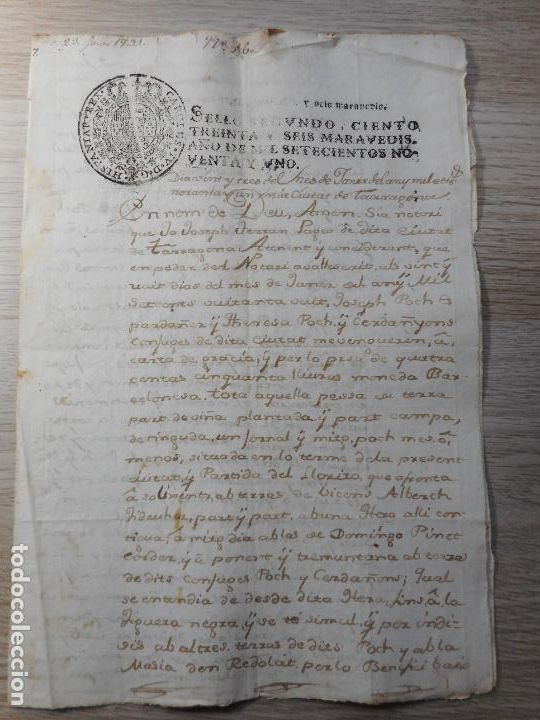 23 Janer 1791.
SELLO SEGVNDO, CIENTO
TREINTA Y SEIS MARAVEDIS,
AÑO DE MIL SETECIENTOS NO-
VENTA Y VNO.
Dia vint y tres del Mes de Janer del any mil sets
noranta y un en la Ciutat de Tarragona
En nom de Deu, Amen. Sia notori
que Jo Joseph Ferran Pages de dita Ciutat
de Tarragona Atenent y considerant, que
en poder del Notari avall escrit, als vint y
vuit dias del mes de Janer del any Mil
Setcents vuitanta vuit, Joseph Poch Es
pardañer y Theresa Poch, y Cerdañyons
Conjuges de dita Ciutat me veneren, á
carta de gracia, y per lo preu de quatra
centas cinquanta lliuras moneda Bar-
celonesa. Tota aquella pessa de terra
part de viña plantada, y part campa,
de tinguda, un Jornal y mitg, poch mes, ó
menos, situada en lo terme de la present
Ciutat, y Partida del Llorito, que afronta
á solixent, ab terras, de Vicens Alberch
Fideuher, part, y part, ab una Hera alli con
tigua; á mitg dia ab las de Domingo Pinet
Corder, y á ponent y tremuntana ab terras
de dits Conjuges Poch y Cerdañons; Qual
se entendia de desde dita Hera, fins, á la
Figuera negra, y se té simul, y per indi-
sis ab altres, terras de dits Poch y ab la
Masia den Redolat, per lo
todocoleccion